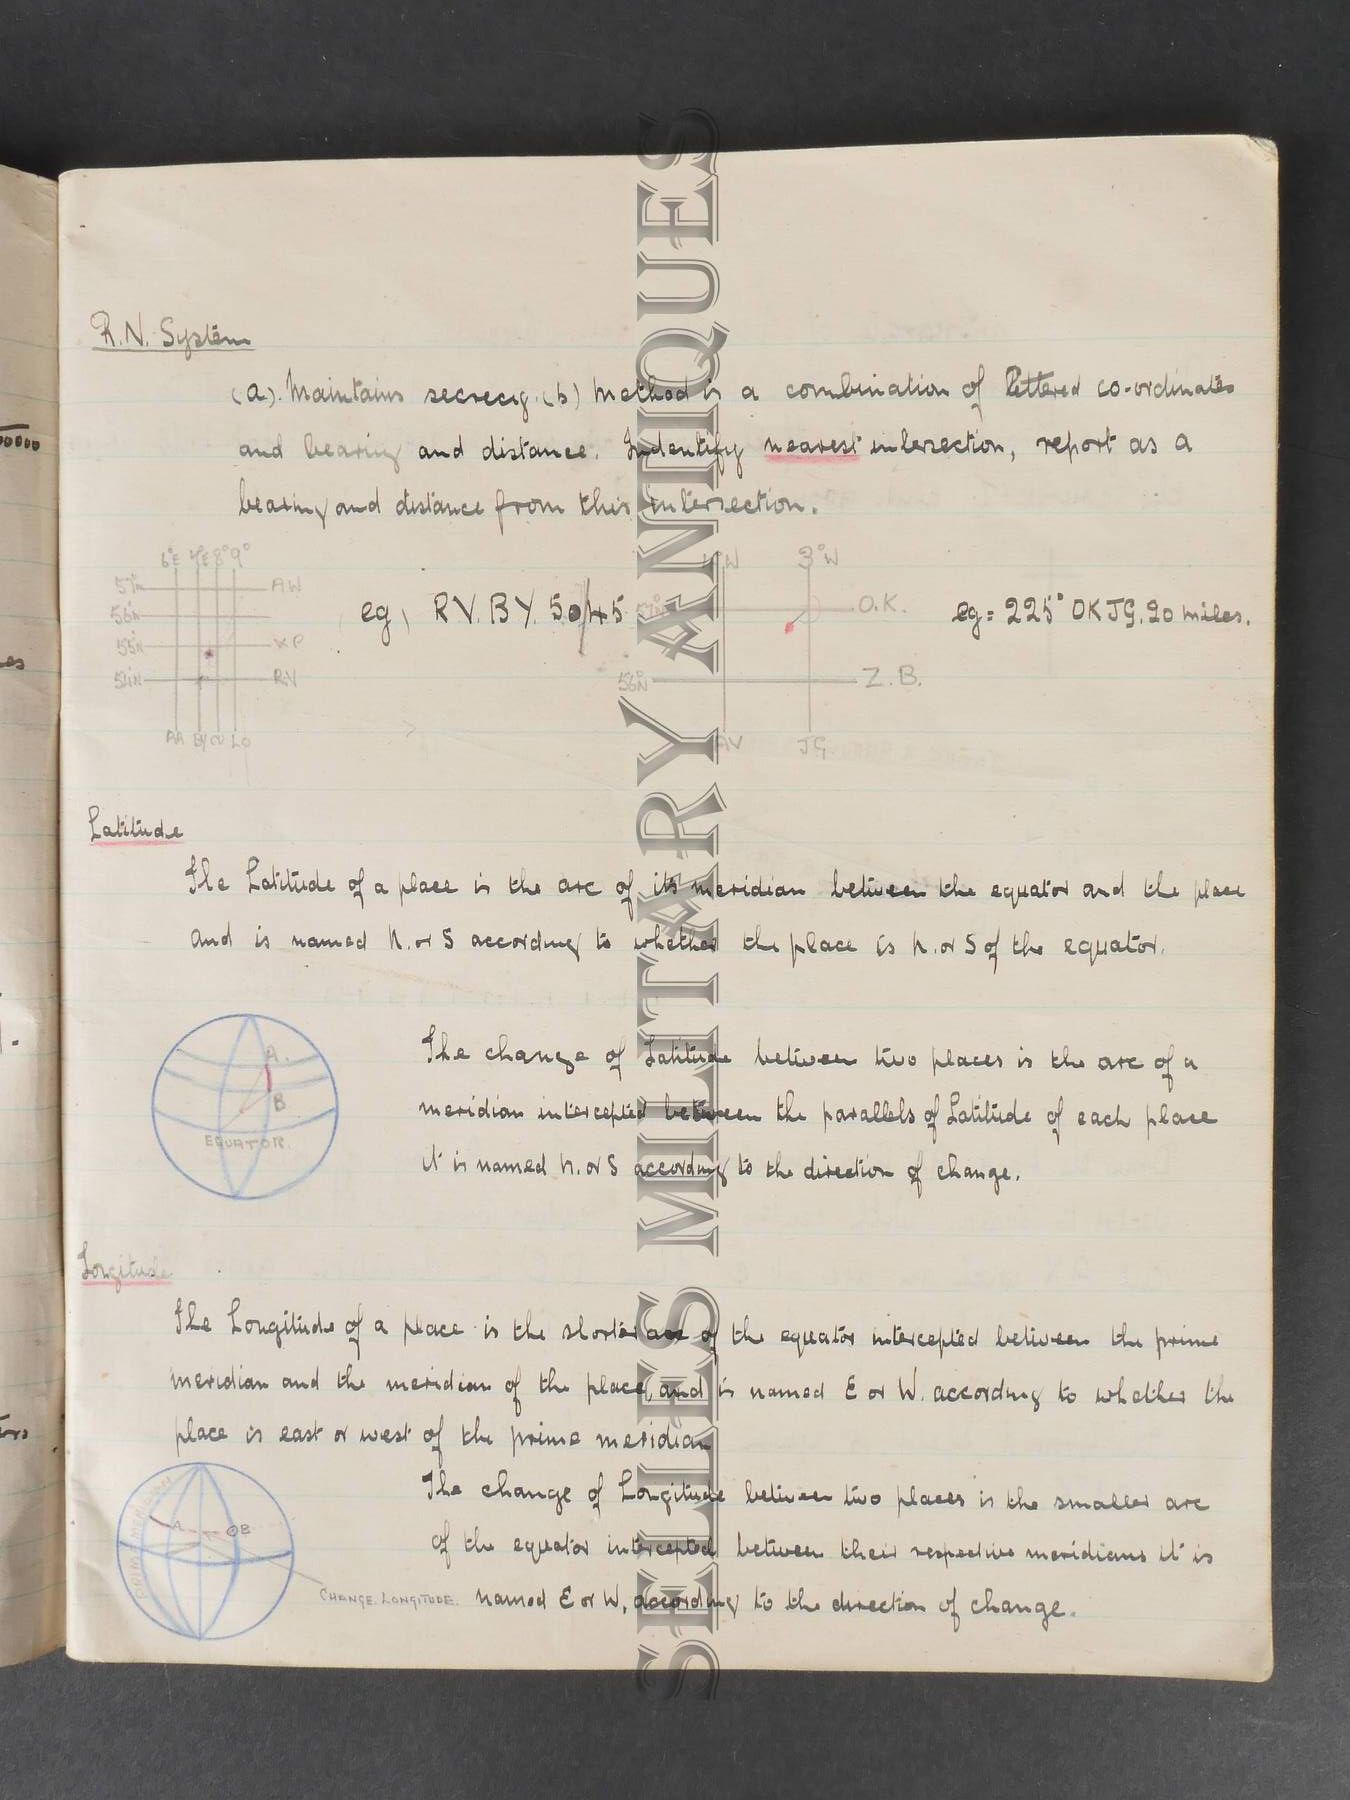 R.N. System
(a). Maintains secrecy. (b) Method is a combination of lettered co-ordinates
and bearing and distance. Indentify nearest intersection, report as a
bearing and distance from this intersection.
6°E 7°E 8° 9°
57°N AW
56°N
55°N XP
54°N RV
AA BY LO
eg, RV. BY. 50/45
3°W
57°N O.K.
56°N Z.B.
AV JG
eg = 225° OKJG. 20 miles.
Latitude
The Latitude of a place is the arc of its meridian between the equator and the place
and is named N. or S according to whether the place is N. or S of the equator.
A.
B
EQUATOR.
The change of Latitude between two places is the arc of a
meridian intercepted between the parallels of Latitude of each place
it is named N. or S according to the direction of change.
Longitude
The Longitude of a place is the shorter arc of the equator intercepted between the prime
meridian and the meridian of the place, and is named E or W. according to whether the
place is east or west of the prime meridian
PRIME MERIDIAN
A
OB
CHANGE. LONGITUDE.
The change of Longitude between two places is the smaller arc
of the equator intercepted between their respective meridians it is
named E or W, according to the direction of change.
SELLES MILITARY ANTIQUES